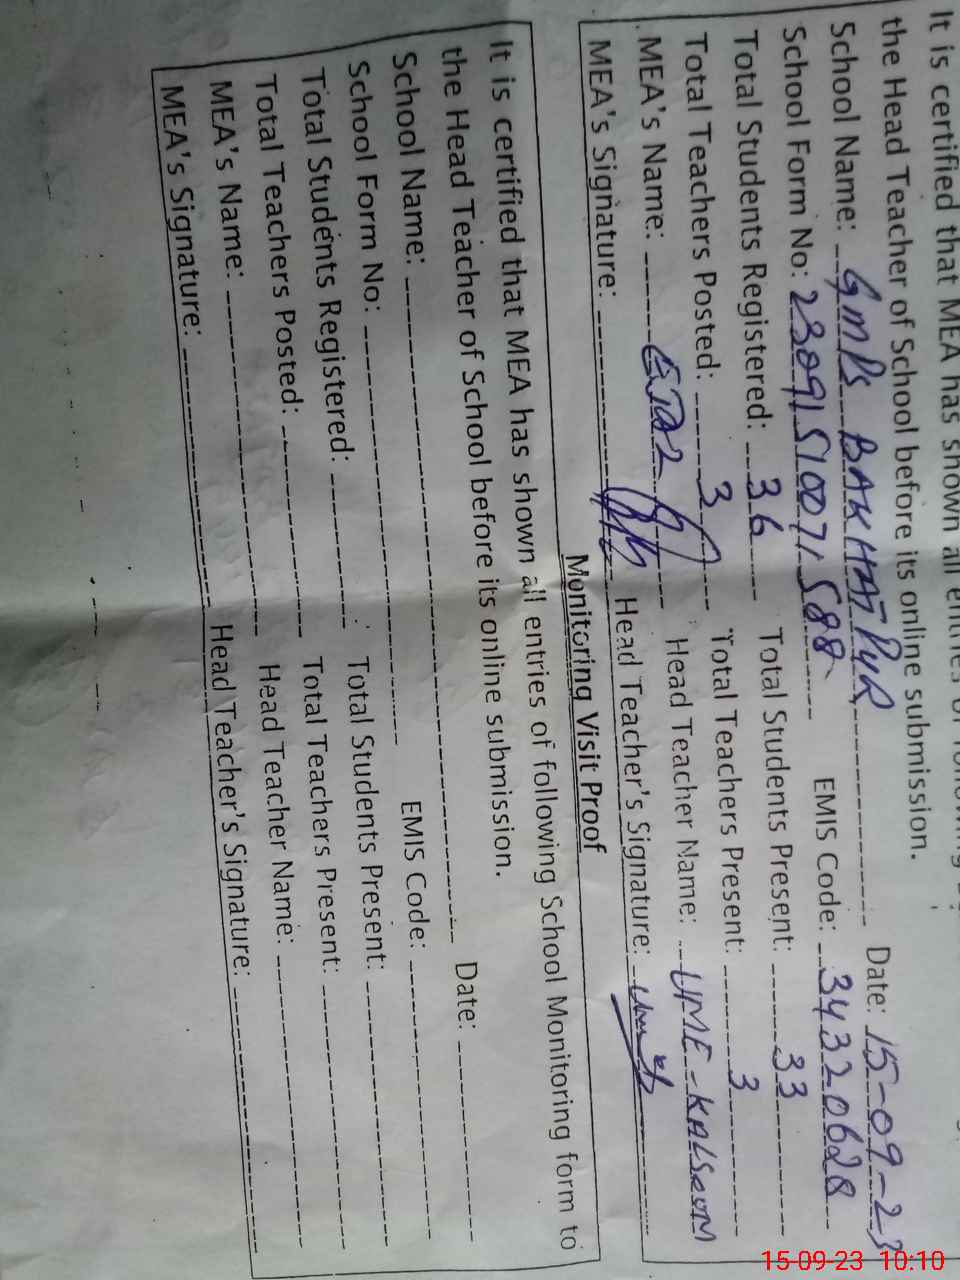 It is certified that MEA has shown all entries of following
the Head Teacher of School before its online submission.
School Name: GMPS BAKHAT PUR Date: 15-09-23
School Form No: 23091510071588 EMIS Code: 34320628
Total Students Registered: 36 Total Students Present: 33
Total Teachers Posted: 3 Total Teachers Present: 3
MEA's Name: Head Teacher Name: UME-KALSOOM
MEA's Signature: Head Teacher's Signature:
Monitoring Visit Proof
It is certified that MEA has shown all entries of following School Monitoring form to
the Head Teacher of School before its online submission.
School Name: Date:
School Form No: EMIS Code:
Total Students Registered: Total Students Present:
Total Teachers Posted: Total Teachers Present:
MEA's Name: Head Teacher Name:
MEA's Signature: Head Teacher's Signature:
15-09-23 10:10